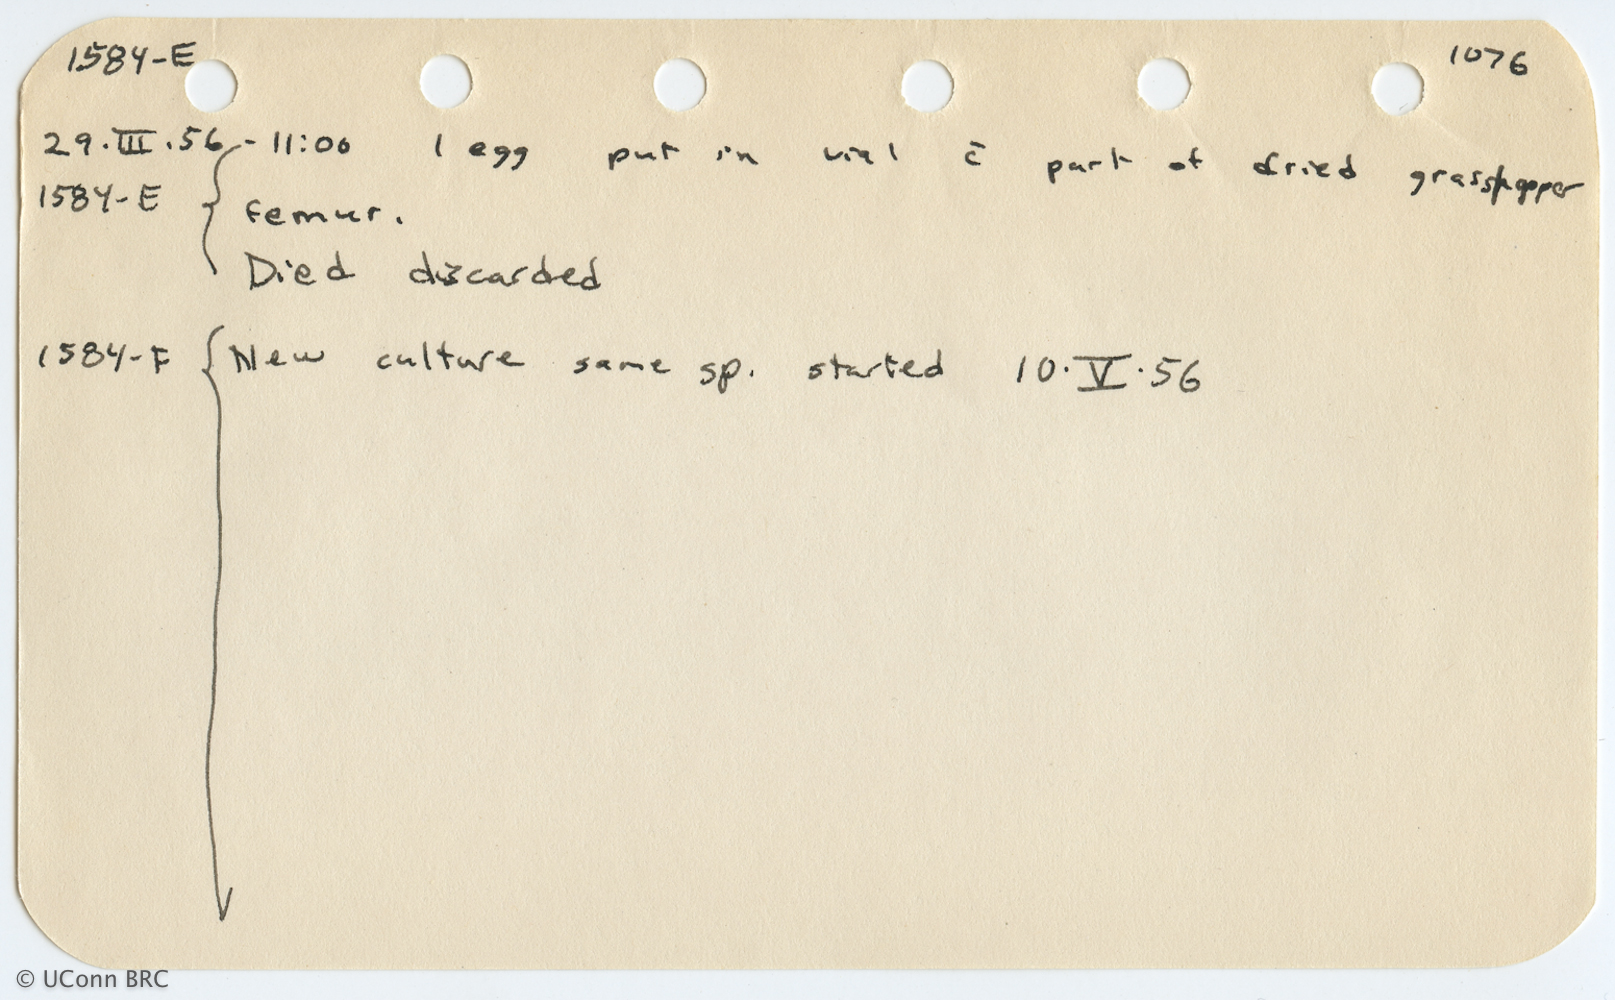 1584-E 1076
29.III.56 - 11:00 1 egg put in vial c̄ part of dried grasshopper
1584-E femur.
Died discarded
1584-F New culture same sp. started 10.V.56
© UConn BRC